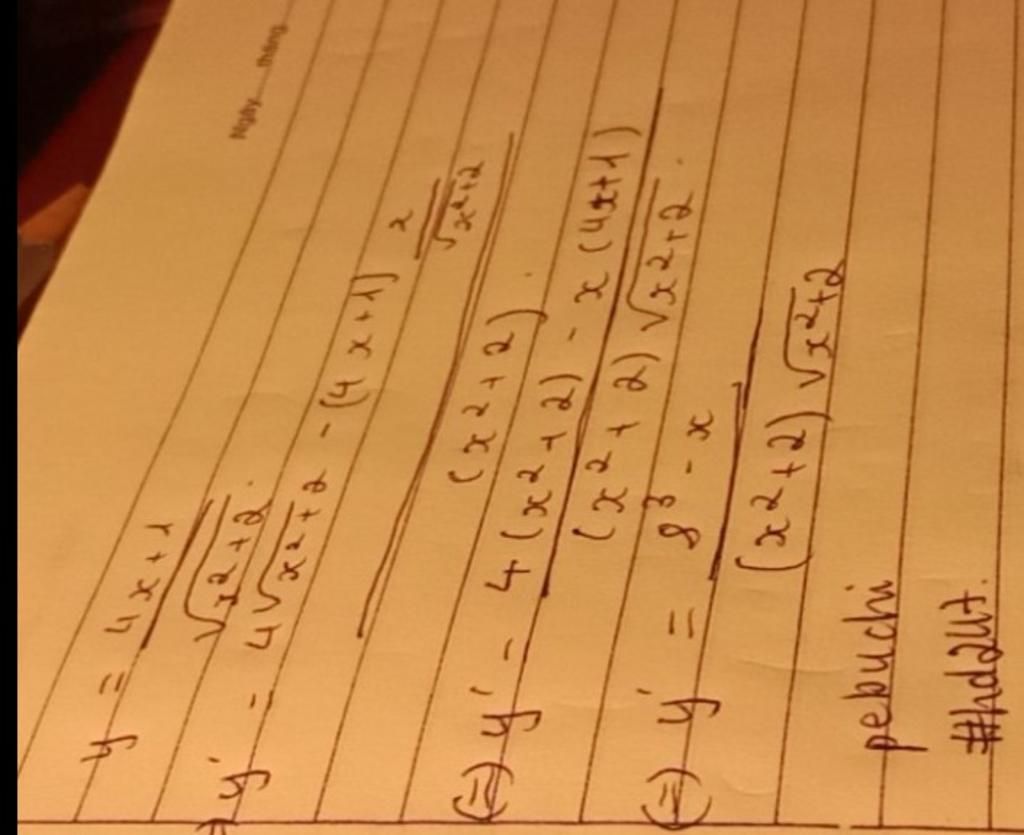 Ngày......tháng
y = \frac{4x+1}{\sqrt{x^2+2}}.
⇒ y' = \frac{4\sqrt{x^2+2} - (4x+1) \frac{x}{\sqrt{x^2+2}}}{(x^2+2)}.
(=) y' = \frac{4(x^2+2) - x(4x+1)}{(x^2+2)\sqrt{x^2+2}}.
(=) y' = \frac{8^3 - x}{(x^2+2)\sqrt{x^2+2}}
pebuchi
#hd247.